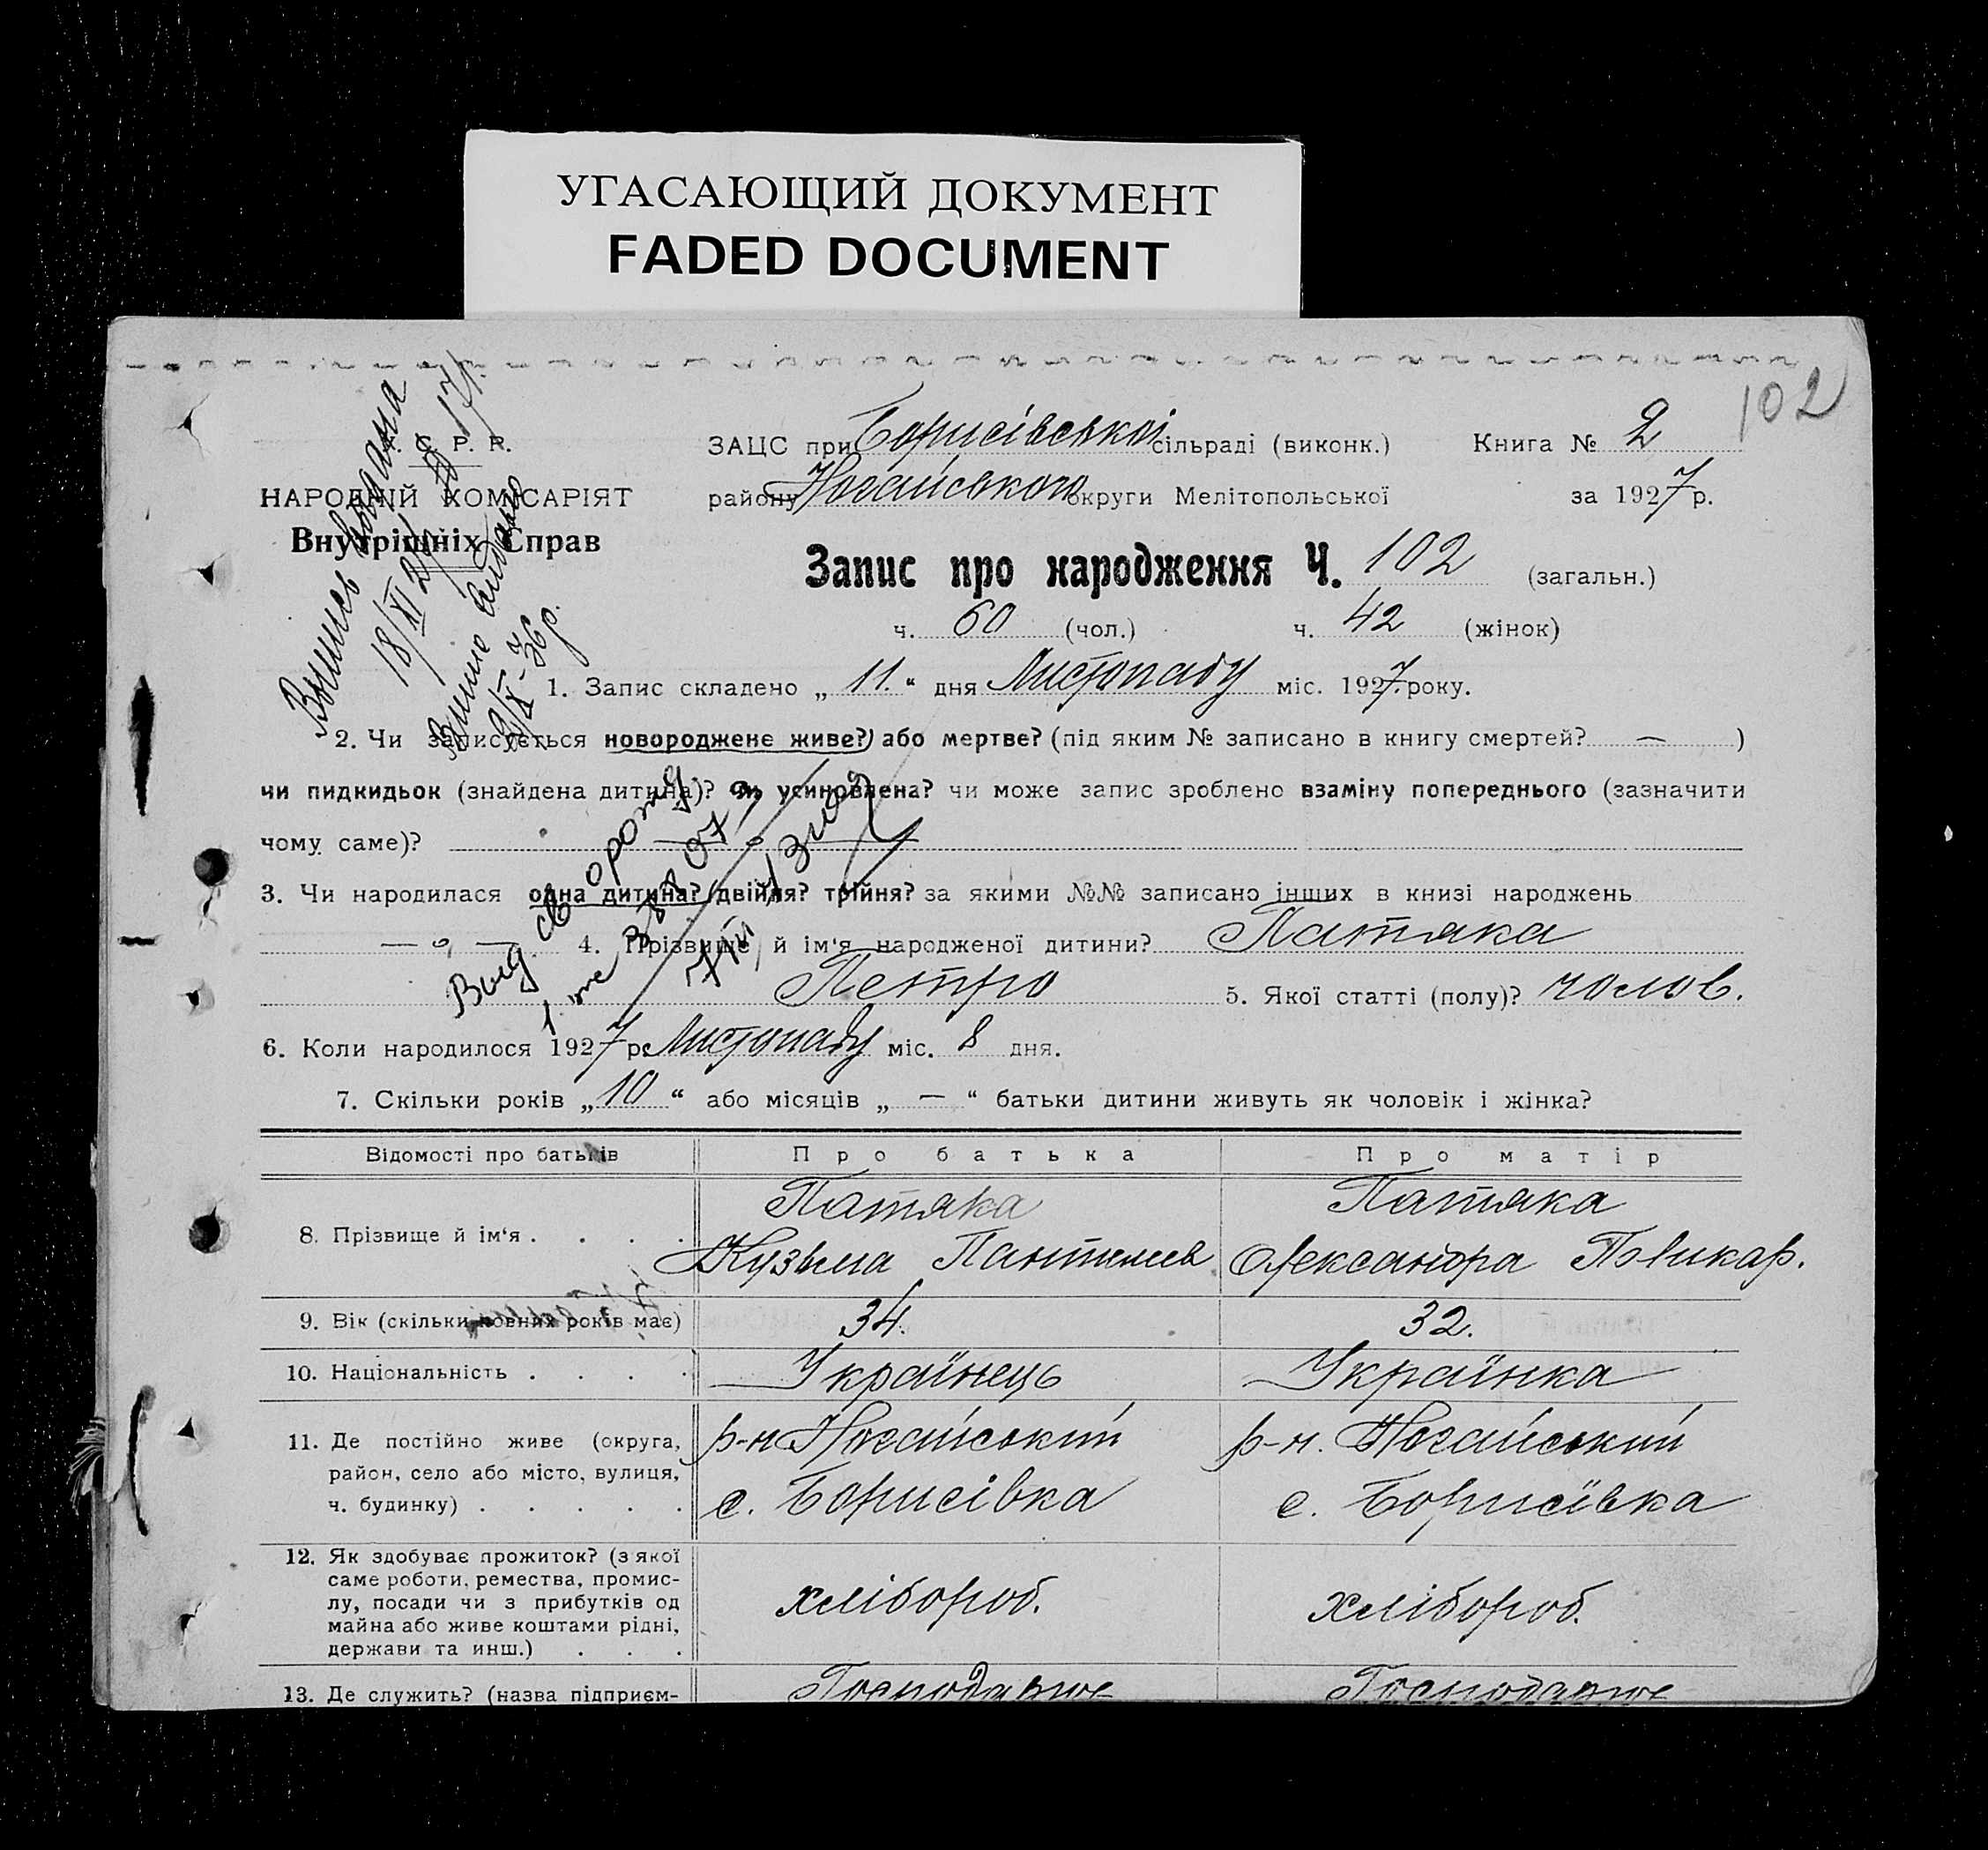 УГАСАЮЩИЙ ДОКУМЕНТ
FADED DOCUMENT
102
С. Р. Р.
НАРОДНІЙ КОМІСАРІЯТ
Внутрішніх Справ
ЗАЦС при Борисівської сільраді (виконк.) Книга № 2
району Ногайського округи Мелітопольської за 1927 р.
Запис про народження Ч. 102 (загальн.)
ч. 60 (чол.) ч. 42 (жінок)
1. Запис складено „ 11. “ дня Листопаду міс. 1927 року.
2. Чи записується новороджене живе? або мертве? (під яким № записано в книгу смертей? — )
чи пидкидьок (знайдена дитина)? чи усиновлена? чи може запис зроблено взаміну попереднього (зазначити
чому саме)?
3. Чи народилася одна дитина? двійня? трійня? за якими №№ записано інших в книзі народжень
4. Прізвище й ім‘я народженої дитини? Патяка
Петро 5. Якої статті (полу)? чолов.
6. Коли народилося 1927 р. Листопаду міс. 8 дня.
7. Скільки років „ 10 “ або місяців „ — “ батьки дитини живуть як чоловік і жінка?
Відомості про батьків Про батька Про матір
8. Прізвище й ім‘я . . . . Патяка Патяка
Кузьма Пантилеев Олександра Полікар.
9. Вік (скільки повних років має) 34. 32.
10. Національність . . . . Українець Українка
11. Де постійно живе (округа, р-н Ногайський р-н. Ногайський
район, село або місто, вулиця,
ч. будинку) . . . . . с. Борисівка с. Борисівка
12. Як здобуває прожиток? (з якої
саме роботи, ремества, промис-
лу, посади чи з прибутків од хлібороб. хлібороб.
майна або живе коштами рідні,
держави та инш.) . . .
13. Де служить? (назва підприєм-